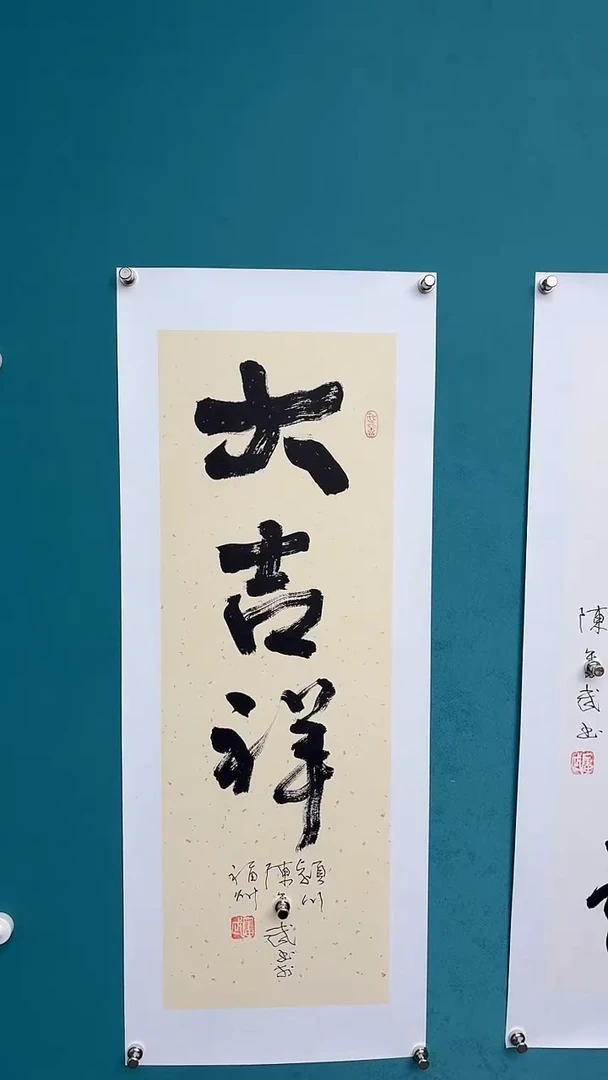 大吉祥
穎川
陳
武書於
福州
陳
武書